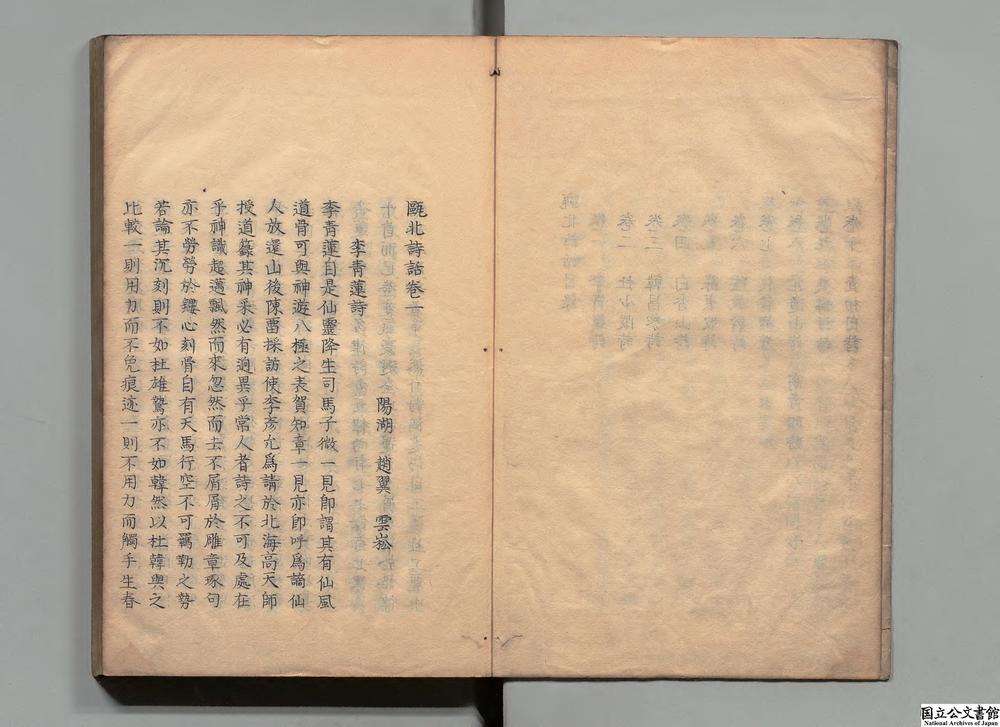 甌北詩話卷一
陽湖 趙翼 雲崧
李青蓮詩
李青蓮自是仙靈降生司馬子微一見即謂其有仙風
道骨可與神遊八極之表賀知章一見亦即呼爲謫仙
人放還山後陳留採訪使李彥允爲請於北海高天師
授道籙其神采必有迥異乎常人者詩之不可及處在
乎神識超邁飄然而來忽然而去不屑屑於雕章琢句
亦不勞勞於鏤心刻骨自有天馬行空不可羈勒之勢
若論其沉刻則不如杜雄鷙亦不如韓然以杜韓與之
比較一則用力而不免痕迹一則不用力而觸手生春
国立公文書館
National Archives of Japan